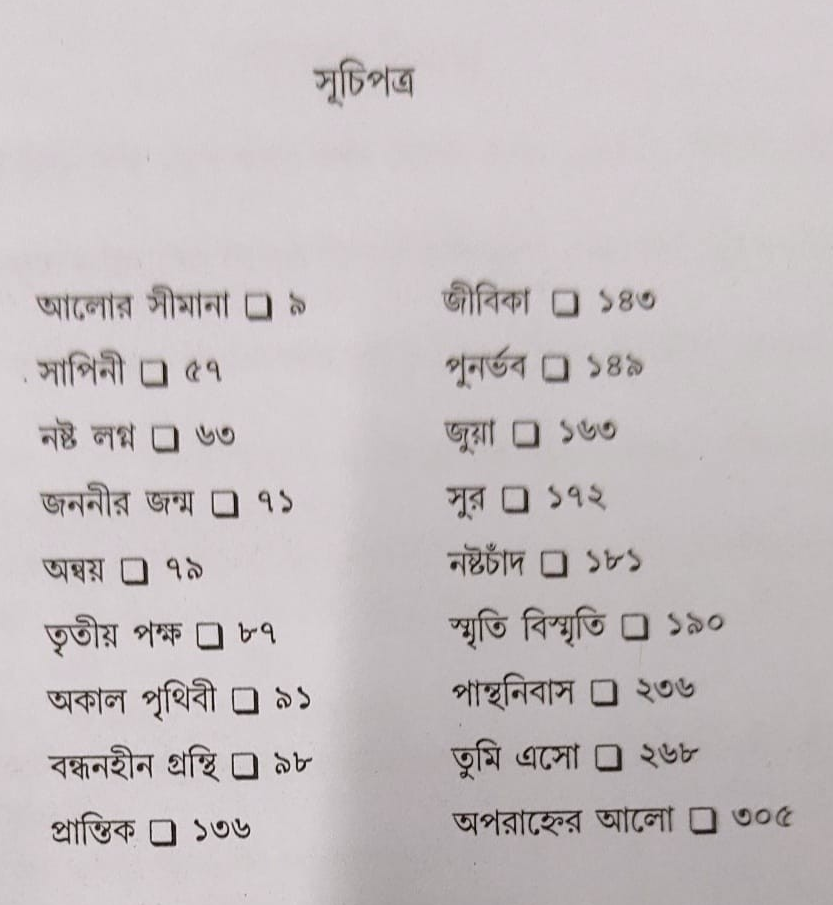 সূচিপত্র
আলোর সীমানা □ ৯
সাপিনী □ ৫৭
নষ্ট লগ্ন □ ৬৩
জননীর জন্ম □ ৭১
অন্বয় □ ৭৯
তৃতীয় পক্ষ □ ৮৭
অকাল পৃথিবী □ ৯১
বন্ধনহীন গ্রন্থি □ ৯৮
প্রান্তিক □ ১৩৬
জীবিকা □ ১৪৩
পুনর্ভব □ ১৪৯
জুয়া □ ১৬৩
সুর □ ১৭২
নষ্টচাঁদ □ ১৮১
স্মৃতি বিস্মৃতি □ ১৯০
পান্থনিবাস □ ২৩৬
তুমি এসো □ ২৬৮
অপরাহ্নের আলো □ ৩০৫